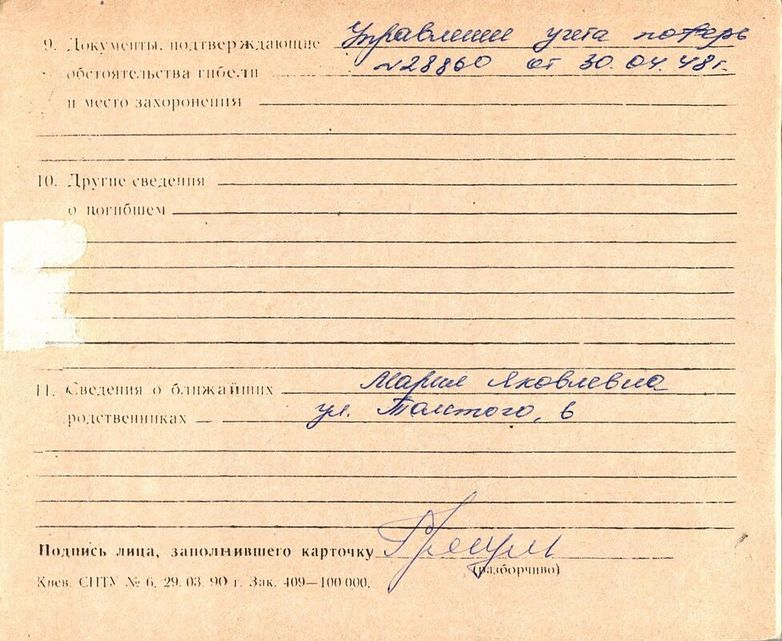 9. Документы, подтверждающие Управление учета потерь
обстоятельства гибели №28860 от 30.04.48г.
и место захоронения
10. Другие сведения
о погибшем
11. Сведения о ближайших Мария Яковлевна
родственниках ул. Толстого, 6
Подпись лица, заполнившего карточку
(разборчиво)
Киев. СПТУ № 6. 29. 03. 90 г. Зак. 409—100 000.